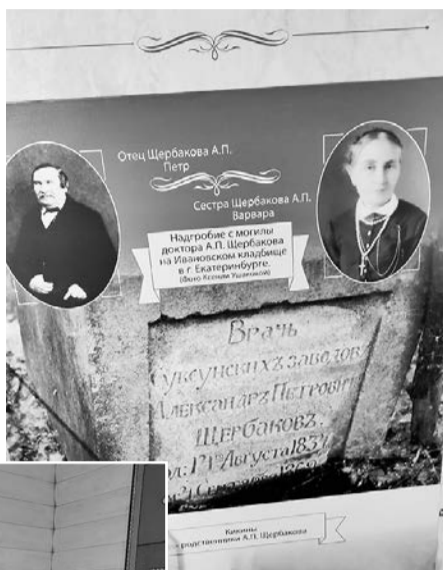 Отец Щербакова А.П.
Петр
Сестра Щербакова А.П.
Варвара
Надгробие с могилы
доктора А.П. Щербакова
на Ивановском кладбище
в г. Екатеринбурге.
(Фото Ксении Ушаковой)
Врачь
Суксунскихъ заводов
Александръ Петрович
Щербаковъ.
Августа 1837
Кикины
родственники А.П. Щербакова